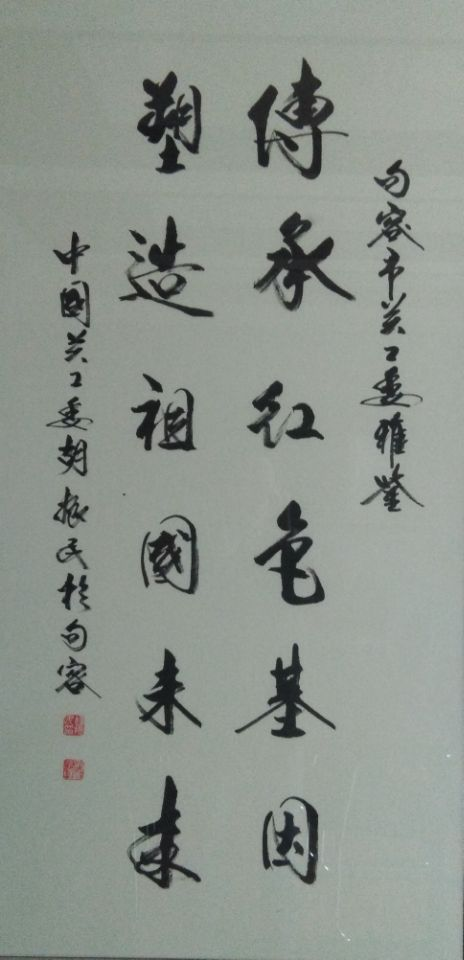 句容市关工委雅鉴
傳承红色基因
塑造祖國未来
中國关工委胡振民於句容